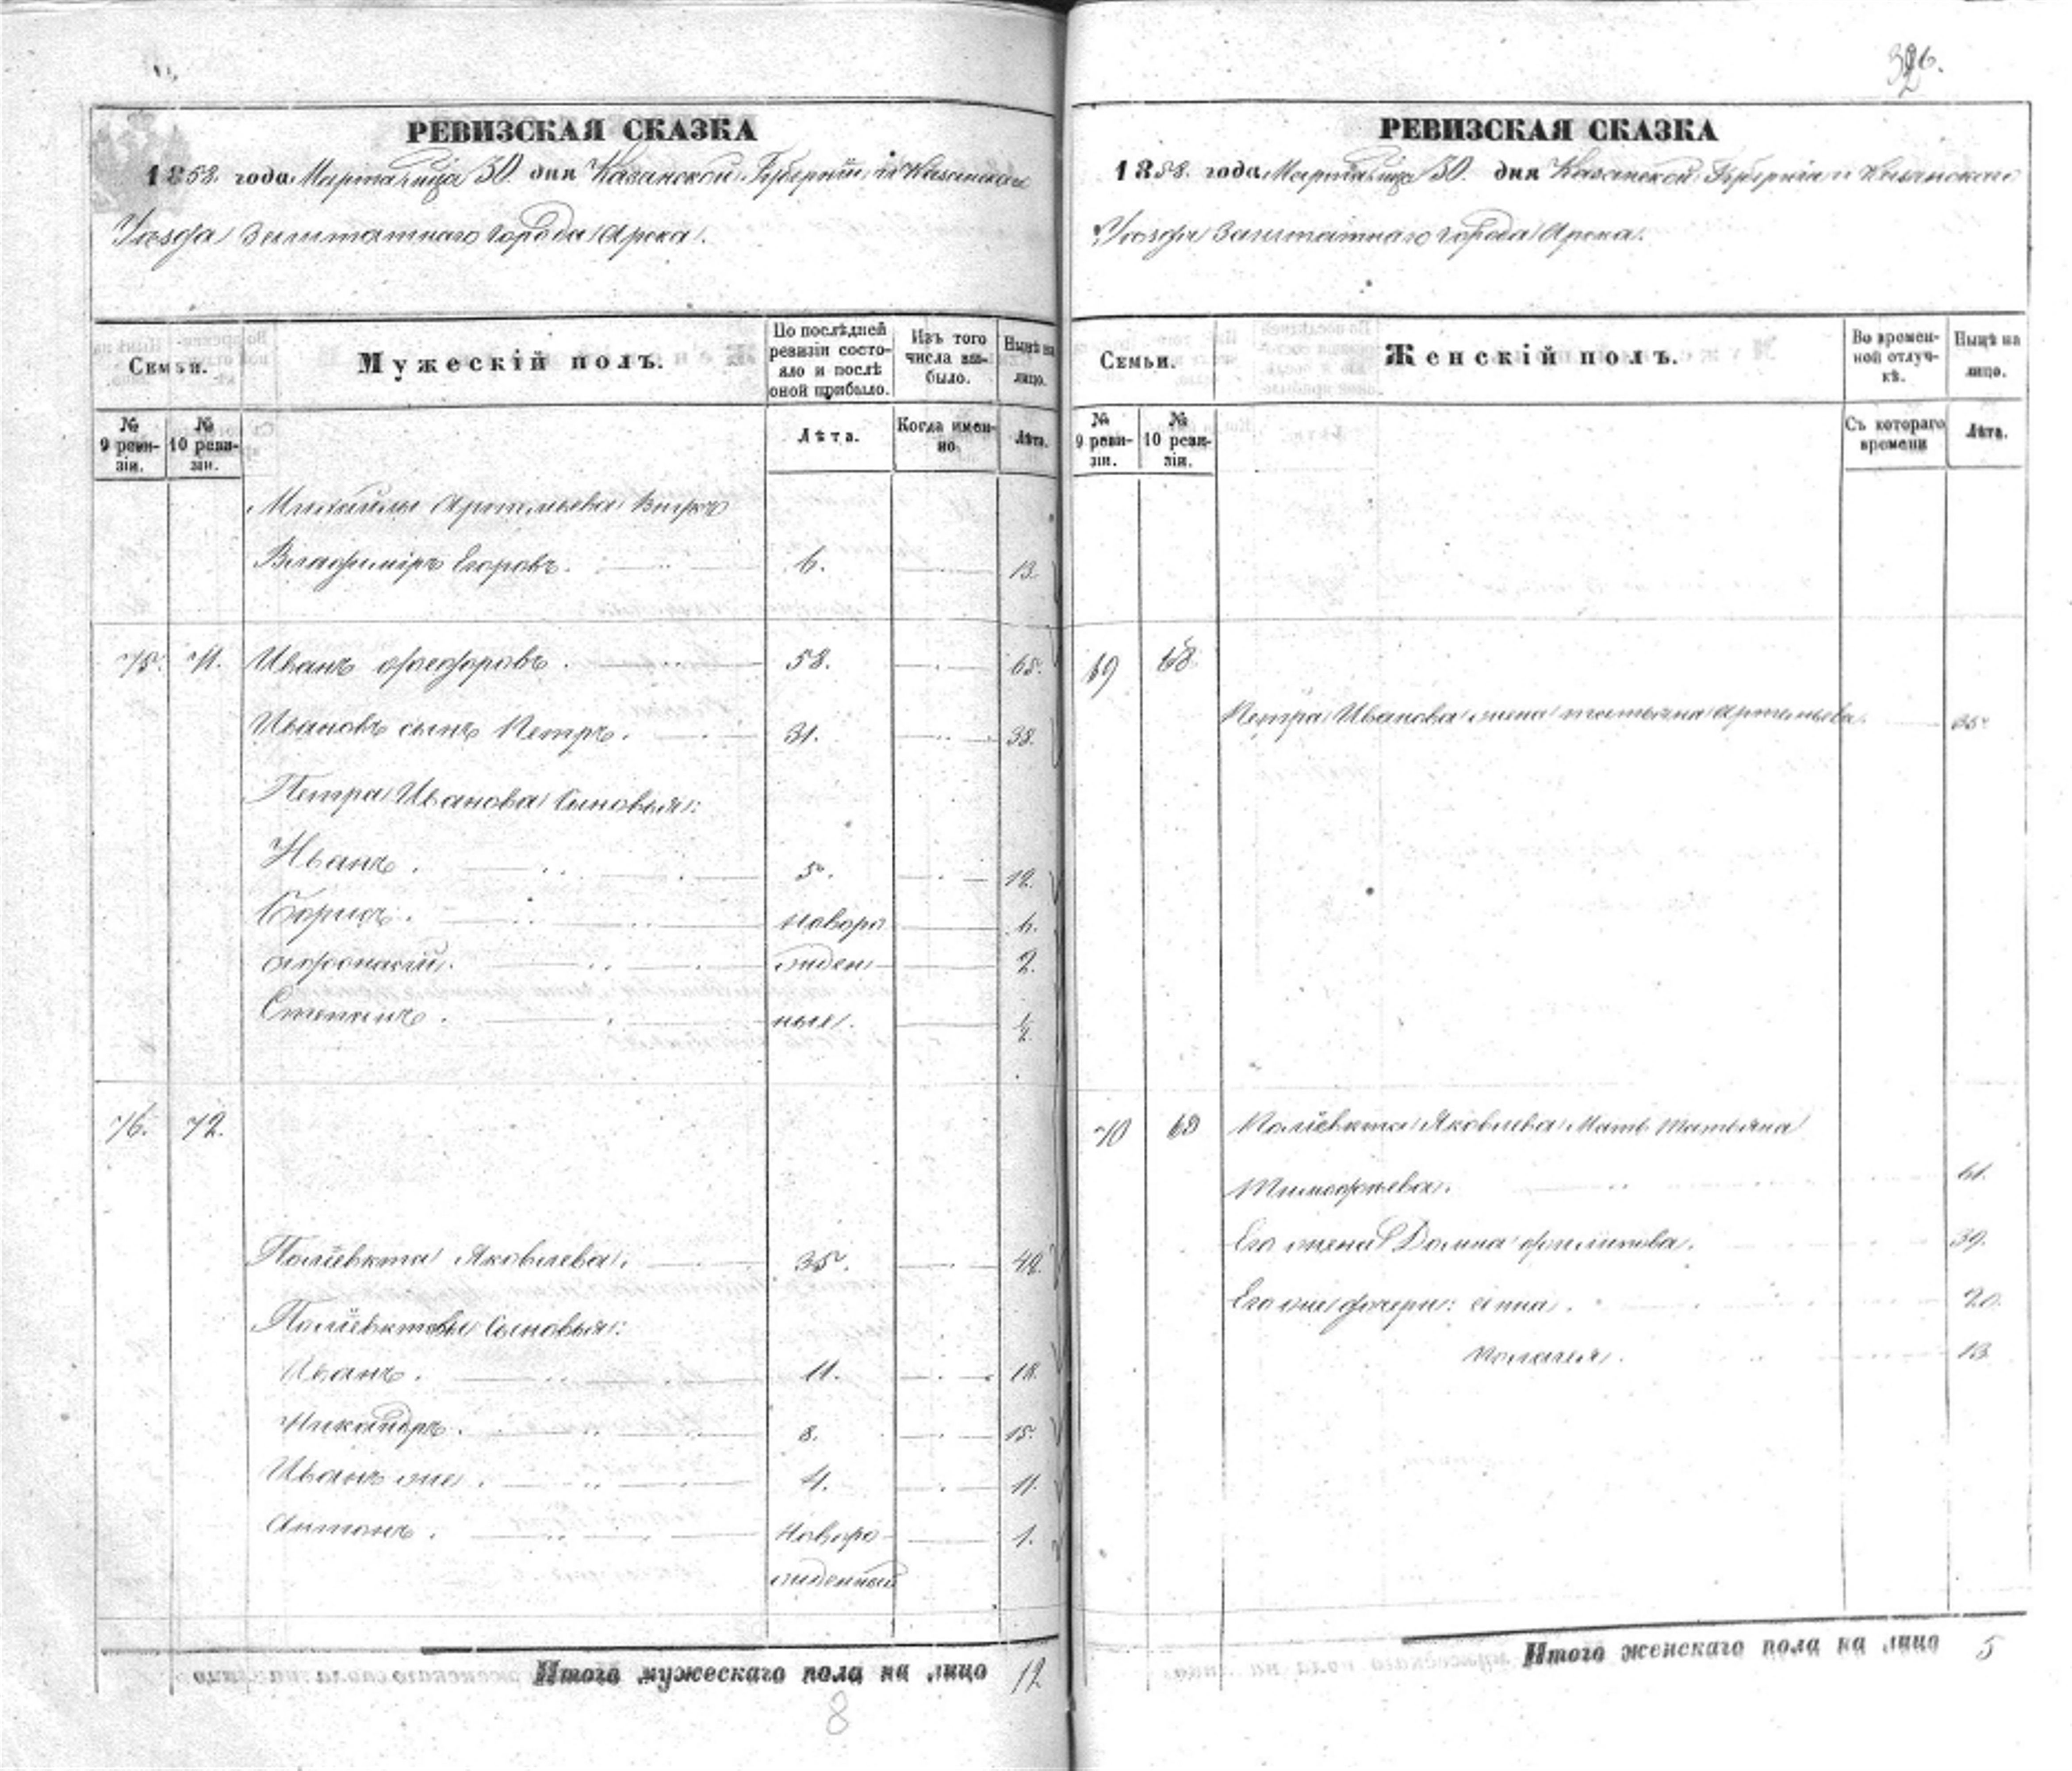 326.
РЕВИЗСКАЯ СКАЗКА
1858. года Марта м-ца 30. дня Казанской Губерніи и Казанскаго
Уѣзда Заштатнаго города Арска.
Семьи.
Мужескій полъ.
По послѣдней ревизіи состояло и послѣ оной прибыло.
Изъ того числа выбыло.
Нынѣ на лицо.
№ 9 ревизіи.
№ 10 ревизіи.
Лѣта.
Когда именно
Лѣта.
Михайлы Артемьева внукъ
Владиміръ Егоровъ. 6. 13.
75. 71. Иванъ Федоровъ. 58. 65.
Ивановъ сынъ Петръ. 31. 38.
Петра Иванова сыновья:
Иванъ. 5. 12.
Борисъ. Новоро
Афонасій. жден 2.
Степанъ. ные. 1/2
76. 72.
Поліевкта Яковлева. 35. 42.
Поліевктовы сыновья:
Иванъ. 11. 18.
Никандръ. 8. 15.
Иванъ же. 4. 11.
Антонъ. Новоро 1.
жденный
Итого мужескаго пола на лицо 12
8
РЕВИЗСКАЯ СКАЗКА
1858. года Марта м-ца 30. дня Казанской Губерніи и Казанскаго
Уѣзда Заштатнаго города Арска.
Семьи.
Женскій полъ.
Во временной отлучкѣ.
Нынѣ на лицо.
№ 9 ревизіи.
№ 10 ревизіи.
Съ котораго времени
Лѣта.
69 68
Петра Иванова жена Татьяна Артемьева. 35.
70 69 Поліевкта Яковлева Мать Татьяна
Тимофеева. 61.
Его жена Домна Филипова. 39.
Его же дочери: Анна. 20.
Пелагея. 13.
Итого женскаго пола на лицо 5